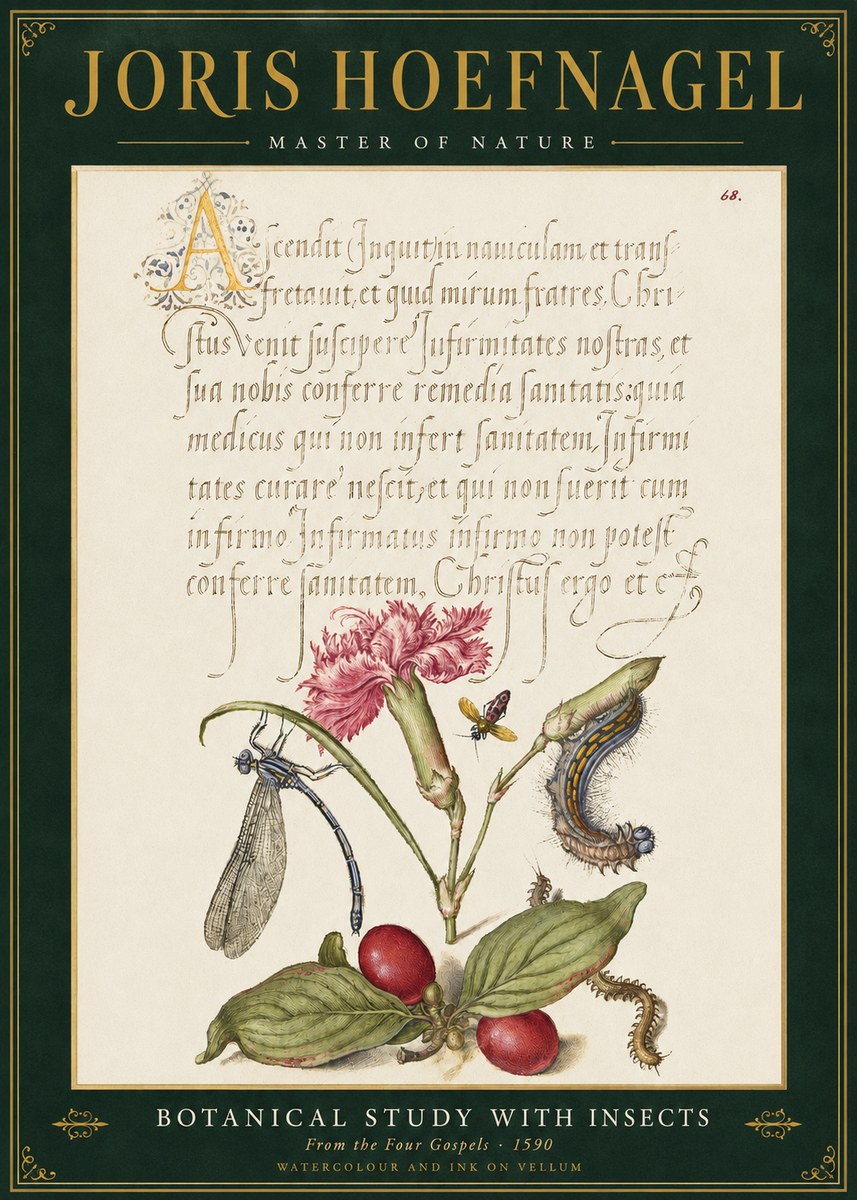 JORIS HOEFNAGEL
MASTER OF NATURE
68.
Ascendit (Inquit) in nauiculam et tranſ-
fretauit, et quid mirum fratres, Chri-
ſtus venit ſuſcipere Jufirmitates noſtras, et
ſua nobis conferre remedia ſanitatis: quia
medicus qui non infert ſanitatem, Infirmi
tates curare neſcit, et qui non fuerit cum
infirmo Infirmatus infirmo non poteſt
conferre ſanitatem, Chriſtuſ ergo et c
BOTANICAL STUDY WITH INSECTS
From the Four Gospels · 1590
WATERCOLOUR AND INK ON VELLUM